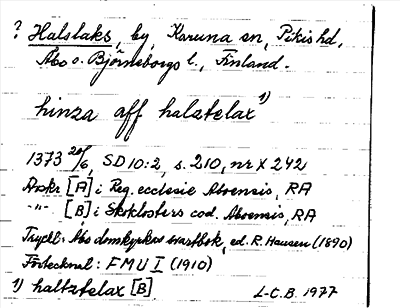 ? Halslaks, by, Karuna sn, Pikis hd,
Åbo o. Björneborgs l., Finland.
hinza aff halztelax 1)
1373 20/6, SD 10:2, s. 210, nr X 242
Avskr. [A] i Reg. ecclesie Aboensis, RA
-"- [B] i Skoklosters cod. Aboensis, RA
Tryckt: Åbo domkyrkas svartbok, ed. R. Hausen (1890)
Förtecknat: FMU I (1910)
1) haltztelax [B]
L-C.B. 1977